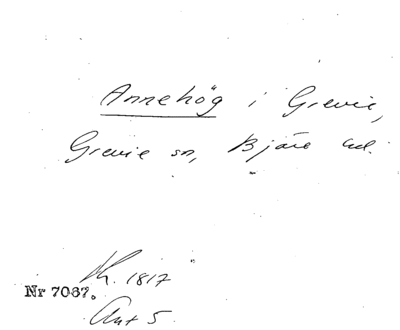 Annehög i Grevie,
Grevie sn, Bjäre hd.
Kh. 1817
Nr 7037.
Ant 5.